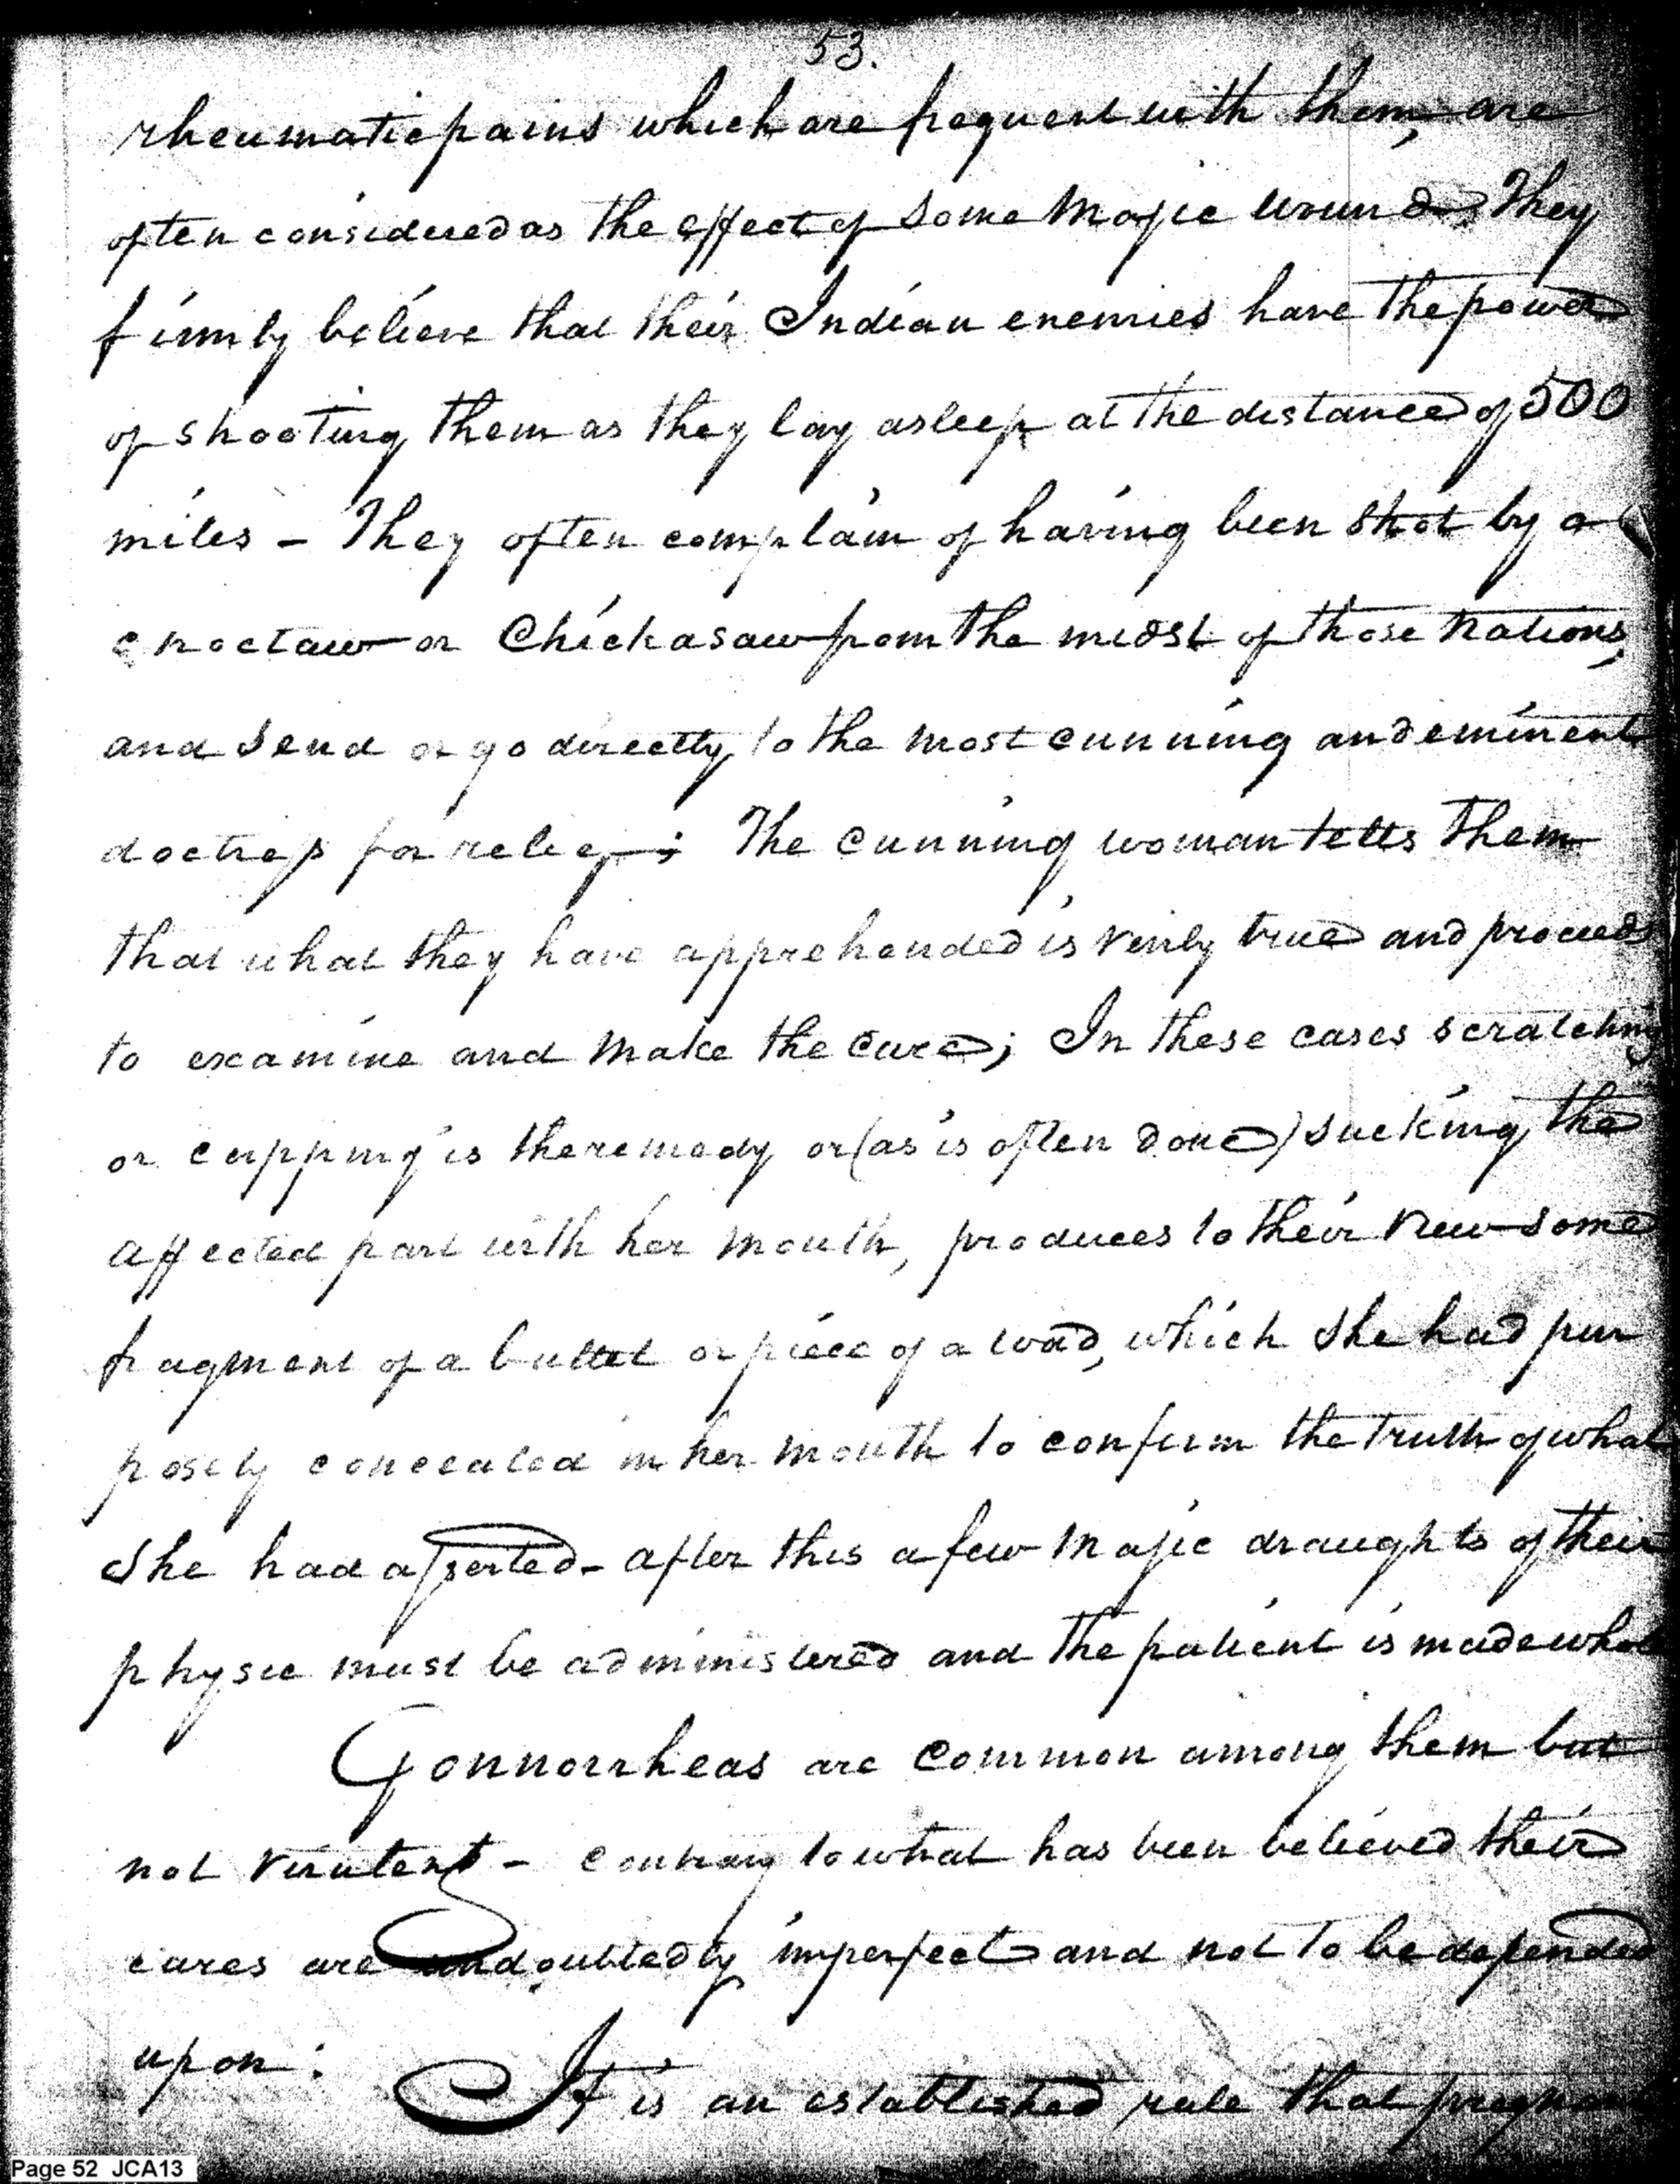 53.
rheumatic pains which are frequent with them, are
often considered as the effect of some Majic wound. They
firmly believe that their Indian enemies have the power
of shooting them as they lay asleep at the distance of 500
miles - They often complain of having been shot by a
choctaw or Chickasaw from the midst of those Nations,
and send or go directly to the most cunning and eminent
doctress for relief; The cunning woman tells them
that what they have apprehended is verily true and proceeds
to examine and make the cure; In these cases scratching
or cupping is the remedy or (as is often done) sucking the
affected part with her mouth, produces to their view some
fragment of a bullet or piece of a wad, which she had pur
posely concealed in her mouth to confirm the truth of what
she had asserted - after this a few Majic draughts of their
physic must be administered and the patient is made whole
Gonnorrheas are common among them but
not virulent - contrary to what has been believed their
cures are undoubtedly imperfect and not to be depended
upon:
It is an established rule that pregnant
Page 52 JCA13